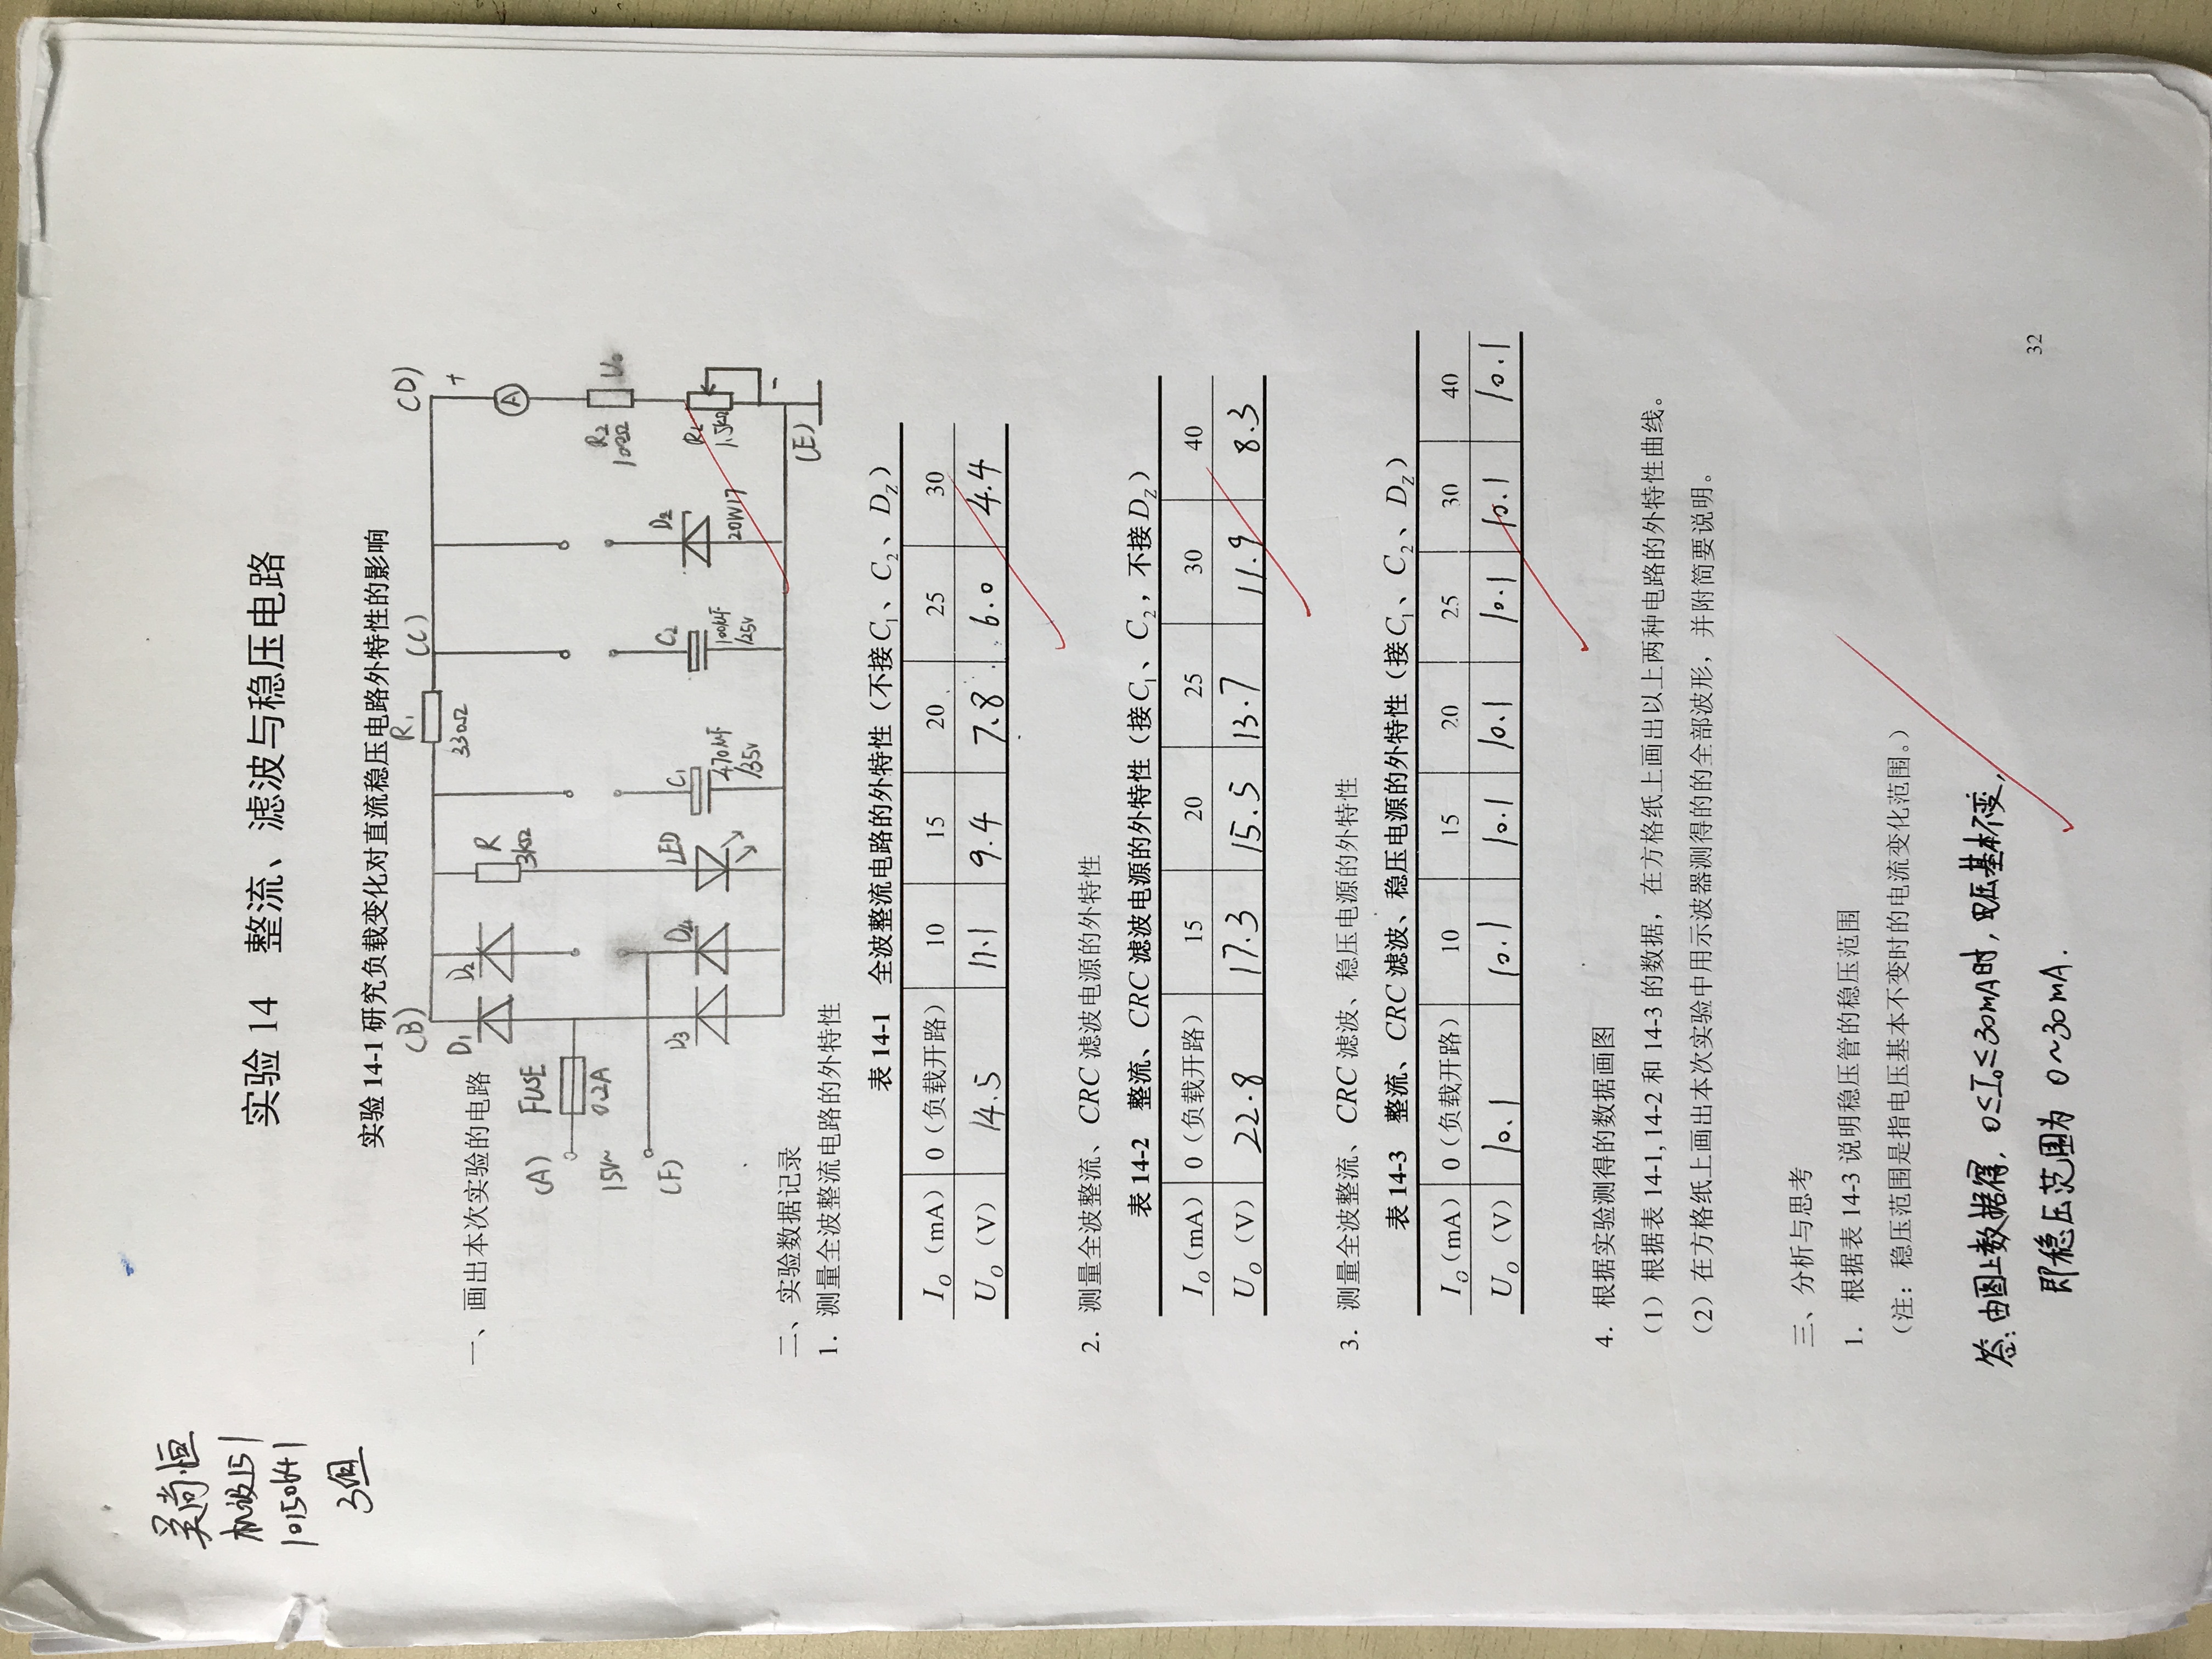 吴尚恒
机设151
10150641
3组
实验 14 整流、滤波与稳压电路
实验 14-1 研究负载变化对直流稳压电路外特性的影响
(B) R₁ (C) (D)
330Ω
+
一、画出本次实验的电路
D₁ D₂ R 3kΩ A
(A) FUSE
15V~ 0.2A
R₂ 100Ω U₀
(F)
D₃ D₄ LED C₁ C₂ D₂ R_L
470μF /35V
100μF /25V
20W17
1.5kΩ
-
(E)
二、实验数据记录
1. 测量全波整流电路的外特性
表 14-1 全波整流电路的外特性（不接 C₁、C₂、D_Z）
I_O（mA） 0（负载开路） 10 15 20 25 30
U_O（V） 14.5 11.1 9.4 7.8 6.0 4.4
2. 测量全波整流、CRC 滤波电源的外特性
表 14-2 整流、CRC 滤波电源的外特性（接 C₁、C₂，不接 D_Z）
I_O（mA） 0（负载开路） 15 20 25 30 40
U_O（V） 22.8 17.3 15.5 13.7 11.9 8.3
3. 测量全波整流、CRC 滤波、稳压电源的外特性
表 14-3 整流、CRC 滤波、稳压电源的外特性（接 C₁、C₂、D_Z）
I_O（mA） 0（负载开路） 10 15 20 25 30 40
U_O（V） 10.1 10.1 10.1 10.1 10.1 10.1 10.1
4. 根据实验测得的数据画图
（1）根据表 14-1, 14-2 和 14-3 的数据，在方格纸上画出以上两种电路的外特性曲线。
（2）在方格纸上画出本次实验中用示波器测得的的全部波形，并附简要说明。
三、分析与思考
1. 根据表 14-3 说明稳压管的稳压范围
（注：稳压范围是指电压基本不变时的电流变化范围。）
答：由图上数据得，0≤I₀≤30mA时，电压基本不变，
即稳压范围为 0~30mA.
32